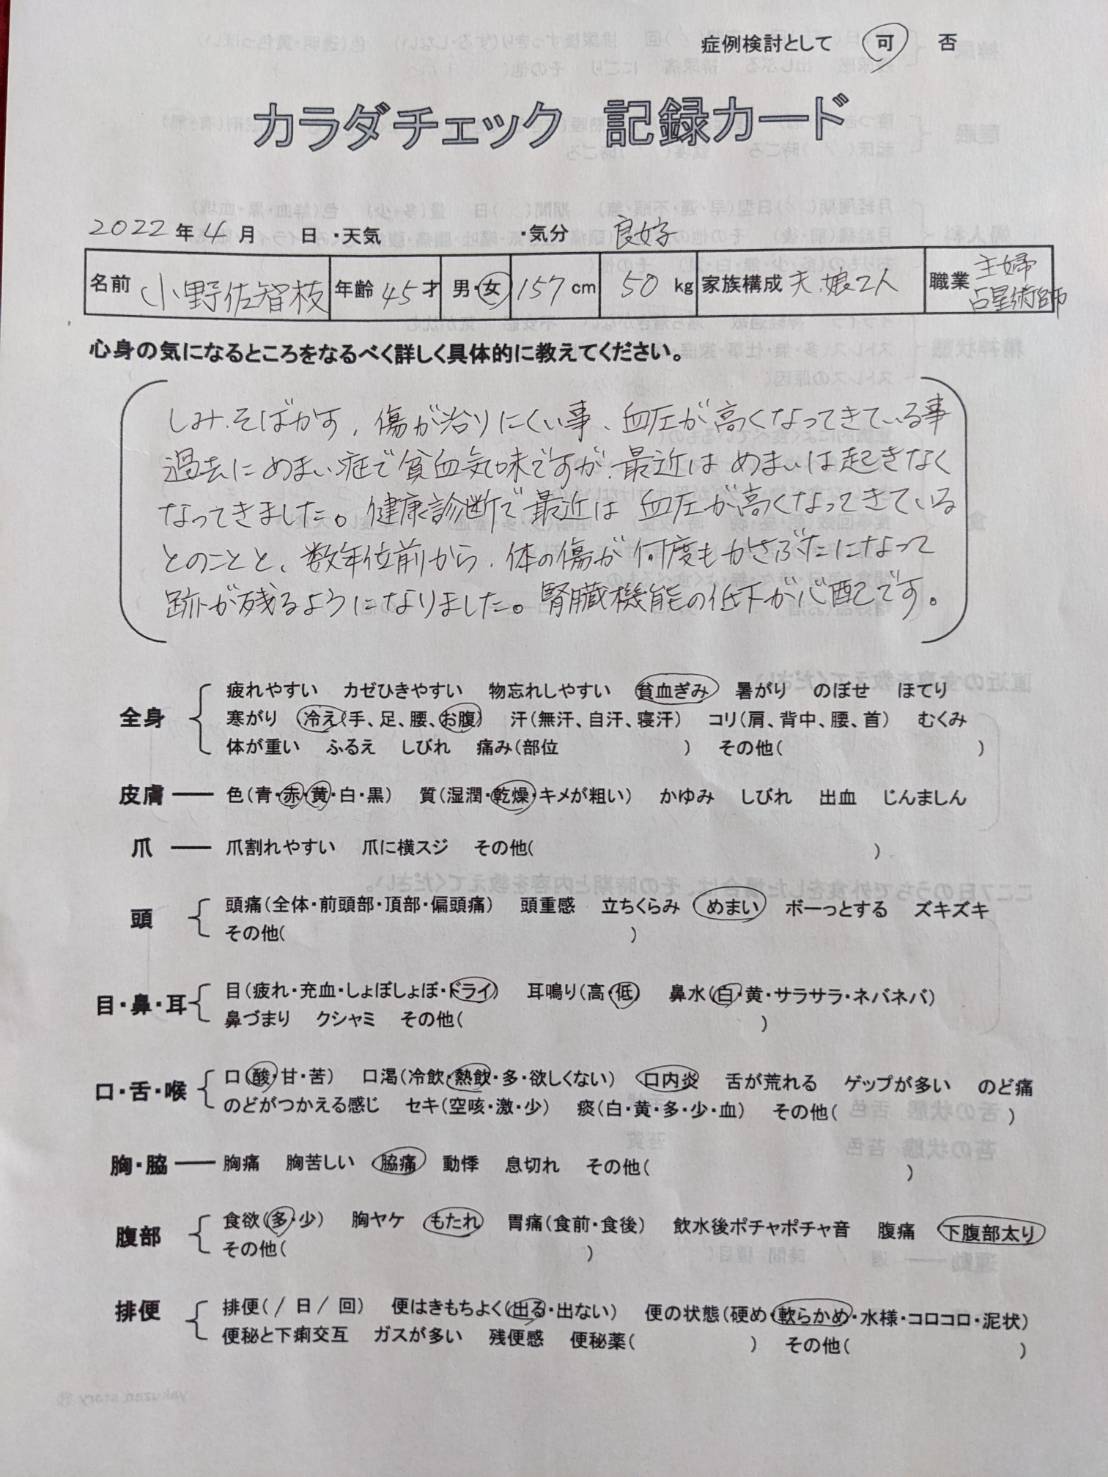 症例検討として 可 否
カラダチェック 記録カード
2022年4月 日・天気 ・気分 良好
名前 小野佐智枝 年齢 45才 男・女 157cm 50kg 家族構成 夫、娘2人 職業 主婦 占星術師
心身の気になるところをなるべく詳しく具体的に教えてください。
しみ、そばかす、傷が治りにくい事、血圧が高くなってきている事
過去にめまい症で貧血気味ですが、最近はめまいは起きなく
なってきました。健康診断で最近は 血圧が高くなってきている
とのことと、数年位前から、体の傷が何度もかさぶたになって
跡が残るようになりました。腎臓機能の低下が心配です。
全身 疲れやすい カゼひきやすい 物忘れしやすい 貧血ぎみ 暑がり のぼせ ほてり
寒がり 冷え(手、足、腰、お腹) 汗(無汗、自汗、寝汗) コリ(肩、背中、腰、首) むくみ
体が重い ふるえ しびれ 痛み(部位 ) その他( )
皮膚 色(青・赤・黄・白・黒) 質(湿潤・乾燥・キメが粗い) かゆみ しびれ 出血 じんましん
爪 爪割れやすい 爪に横スジ その他( )
頭 頭痛(全体・前頭部・頂部・偏頭痛) 頭重感 立ちくらみ めまい ボーっとする ズキズキ
その他( )
目・鼻・耳 目(疲れ・充血・しょぼしょぼ・ドライ) 耳鳴り(高・低) 鼻水(白・黄・サラサラ・ネバネバ)
鼻づまり クシャミ その他( )
口・舌・喉 口(酸・甘・苦) 口渇(冷飲・熱飲・多・欲しくない) 口内炎 舌が荒れる ゲップが多い のど痛
のどがつかえる感じ セキ(空咳・激・少) 痰(白・黄・多・少・血) その他( )
胸・脇 胸痛 胸苦しい 脇痛 動悸 息切れ その他( )
腹部 食欲(多・少) 胸ヤケ もたれ 胃痛(食前・食後) 飲水後ポチャポチャ音 腹痛 下腹部太り
その他( )
排便 排便( / 日 / 回) 便はきもちよく(出る・出ない) 便の状態(硬め・軟らかめ・水様・コロコロ・泥状)
便秘と下痢交互 ガスが多い 残便感 便秘薬( ) その他( )